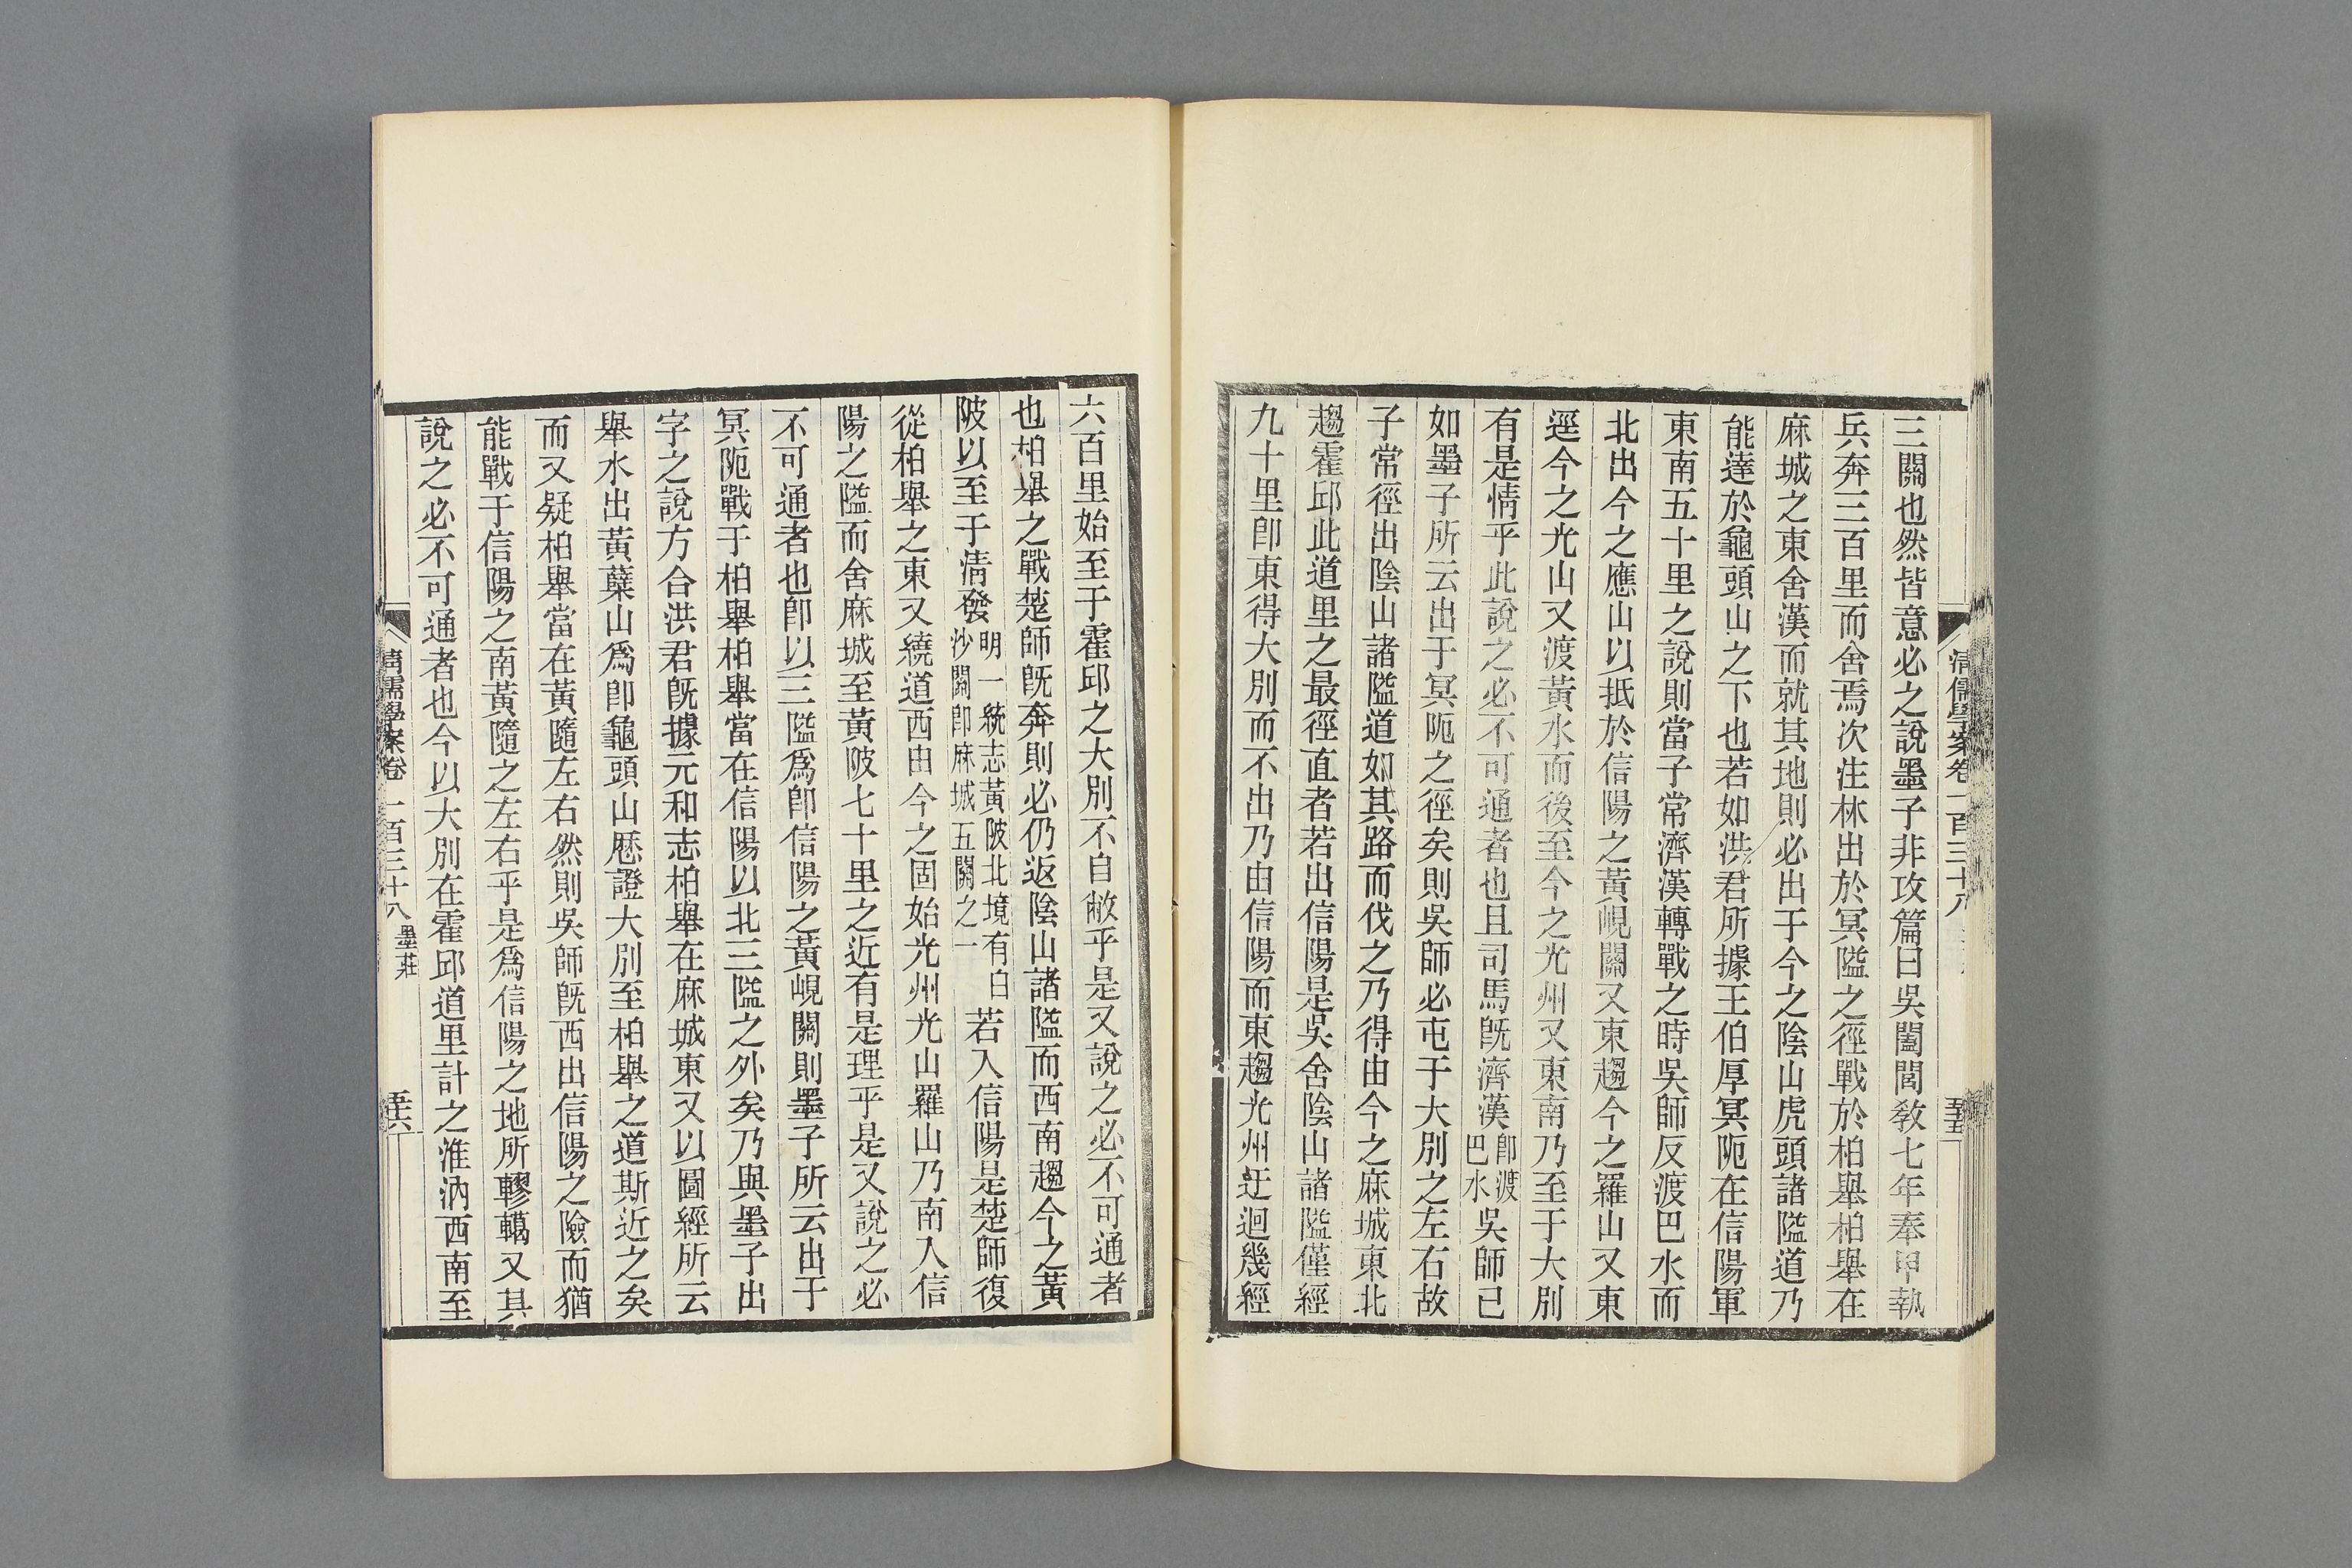 三關也然皆意必之說墨子非攻篇曰吳闔閭敎七年奉甲執
兵奔三百里而舍焉次注林出於冥隘之徑戰於柏舉柏舉在
麻城之東舍漢而就其地則必出于今之陰山虎頭諸隘道乃
能達於龜頭山之下也若如洪君所據王伯厚冥阨在信陽軍
東南五十里之說則當子常濟漢轉戰之時吳師反渡巴水而
北出今之應山以抵於信陽之黃峴關又東趨今之羅山又東
逕今之光山又渡黃水而後至今之光州又東南乃至于大別
有是情乎此說之必不可通者也且司馬旣濟漢卽渡巴水吳師已
如墨子所云出于冥阨之徑矣則吳師必屯于大別之左右故
子常徑出陰山諸隘道如其路而伐之乃得由今之麻城東北
趨霍邱此道里之最徑直者若出信陽是吳舍陰山諸隘僅經
九十里卽東得大別而不出乃由信陽而東趨光州迂迴幾經
六百里始至于霍邱之大別不自敝乎是又說之必不可通者
也柏舉之戰楚師旣奔則必仍返陰山諸隘而西南趨今之黃
陂以至于淸發明一統志黃陂北境有白沙關卽麻城五關之一若入信陽是楚師復
從柏舉之東又繞道西由今之固始光州光山羅山乃南入信
陽之隘而舍麻城至黃陂七十里之近有是理乎是又說之必
不可通者也卽以三隘爲卽信陽之黃峴關則墨子所云出于
冥阨戰于柏舉柏舉當在信陽以北三隘之外矣乃與墨子出
字之說方合洪君旣據元和志柏舉在麻城東又以圖經所云
舉水出黃蘗山爲卽龜頭山歷證大別至柏舉之道斯近之矣
而又疑柏舉當在黃隨左右然則吳師旣西出信陽之險而猶
能戰于信陽之南黃隨之左右乎是爲信陽之地所轇轕又其
說之必不可通者也今以大別在霍邱道里計之淮汭西南至
淸儒學案卷一百三十八 墨莊